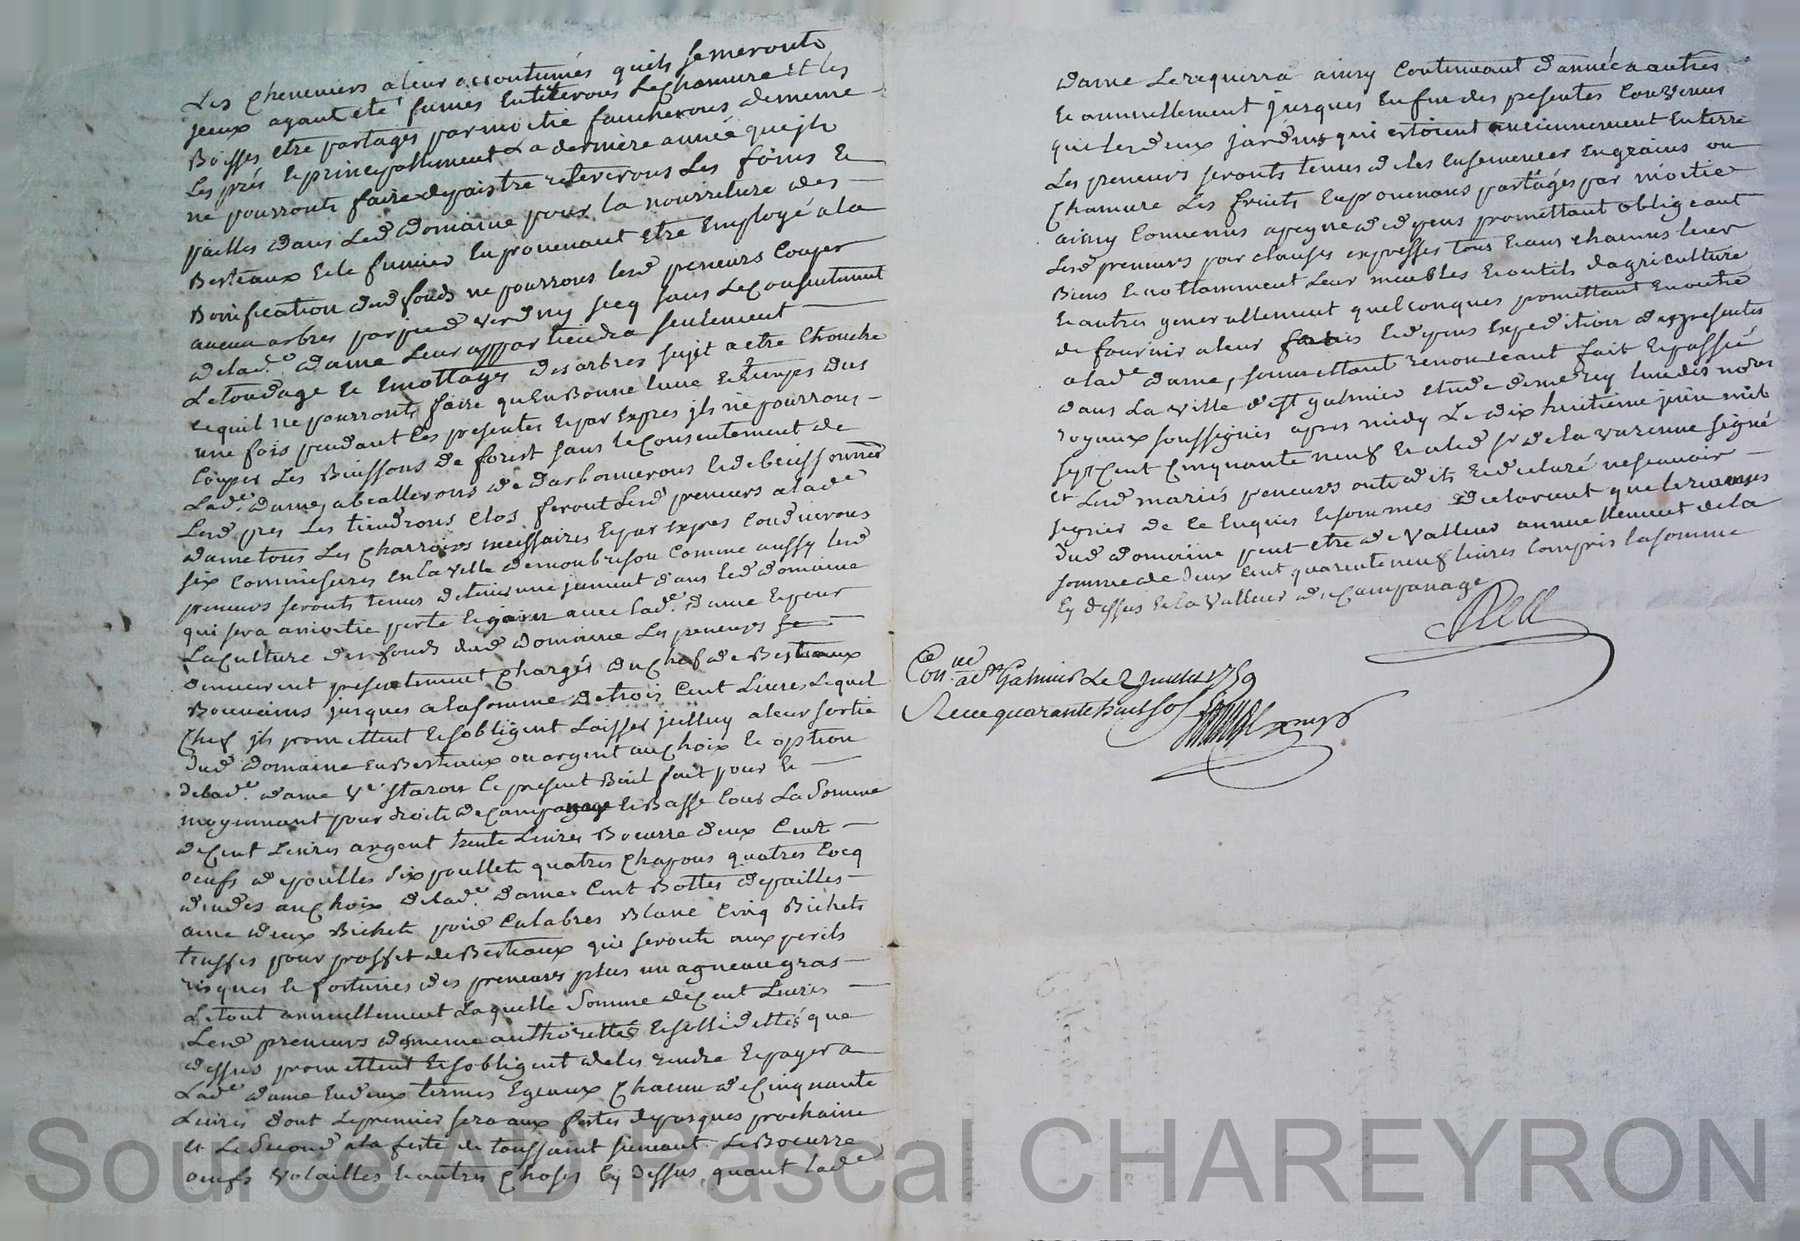 Les cheneviers a leur accoutumés quils semeronts
jceux ayant eté fumés entiterons Le chamure et les
Boisses etre partagés par moitié faucherons de meme
Les prés et principallement La derniere année que jls
ne pourronts faire depaistre releverons Les foins et
pailles dans Led domaine pour la nourriture des
Bestiaux et le fumier en provenant etre Employé a la
Bonification dud fonds ne pourrons lesd preneurs couper
aucun arbres par pied verd ny secq sans Le consentement
de lad.e dame Leur appartiendra seulement
Le tondage et emottage des arbres sujit a etre Etouche
ce quil ne pourronts faire quen Bonne lune et temps dus
une fois pendant les presentes et par Expres jls ne pourrons
Couper Les Buissons de forist sans le consentement de
Lad.e dame, abcallerons de darbonnerons et debuissonnés
Lesd prés Les tiendrons clos feront Lesd preneurs a lad.e
dame tous Les charroires necessaires et par expres conduirons
six commesures en la ville de monbrison comme aussy lesd
preneurs seronts tenus de tenir une jument dans led domaine
qui sera a moitié perte et gain avec lad.e dame et pour
La culture des fonds dud domaine Les preneurs se
demeurent presentement chargés du chef de Bestiaux
Bouvains jusques a la somme de trois cent Livres Lequel
chef jls promettent et sobligent Laisser jcelluy a leur sortie
dud domaine en Bestiaux ou argent au choix et option
de lad.e dame V.e Staron Le present Bail fait pour et
moyennant pour droits de campanage et Basse cour La Somme
de cent Livres argent trente Livres Boeurre deux cent
oeufs de poulles six poullets quatres chapons quatres cocq
dindes au choix de lad.e dame cent Bottes de pailles
avec deux Bichets poid calabres Blanc cinq Bichets
truffes pour proffet de Bestiaux qui seronts aux perils
risques et fortunes des preneurs plus un agneau gras
Le tout annuellement Laquelle Somme de cent Livres
Lesd preneurs de meme authorettés et sollidettés que
dessus promettent et sobligent de les rendre et payer a
Lad.e dame en deux termes Egeaux chacun de cinquante
Livres dont Le premier sera aux festes de pasques prochaine
et Le Second a la feste de toussaint suivant Le Boeurre
oeufs volailles et autres choses cy dessus quant lad.e
dame Le requerra ainsy continuant d'année a autres
et annuellement jusques en fin des presentes convenus
que les deux jardins qui estoient anciennement en terre
Les preneurs seronts tenus de les Ensemencer en grains ou
chamure Les fruits en provenans partagés par moitié
ainsy convenus a peyne de depens promettant obligeant
Lesd preneurs par clauses expresses tous et uns chacuns leur
Biens et nottamment Leur meubles et outils d'agriculture
et autres generallement quelconques promettant en outre
de fournir a leur frais et depens Expedition des presentes
a lad.e dame, soumettant renonceant fait et passé
dans La ville de st galmier etude de me Rey l'un des notres
royaux soussignés apres midy Le dix huitieme juin mil
sept Cent Cinquante neuf et a led sr de la varenne signé
et Lesd mariés preneurs ont dit et declaré ne scavoir
signer de Ce Enquis et sommés declarant que les revenus
dud domaine peut etre de valleur annuellement de la
somme de deux cent quarente neuf livres compris la somme
cy dessus et la valleur du campanage
Con.lé a St Galmier Le 2 Juillet 1759
Receu quarante huit sols
Source AD Pascal CHAREYRON